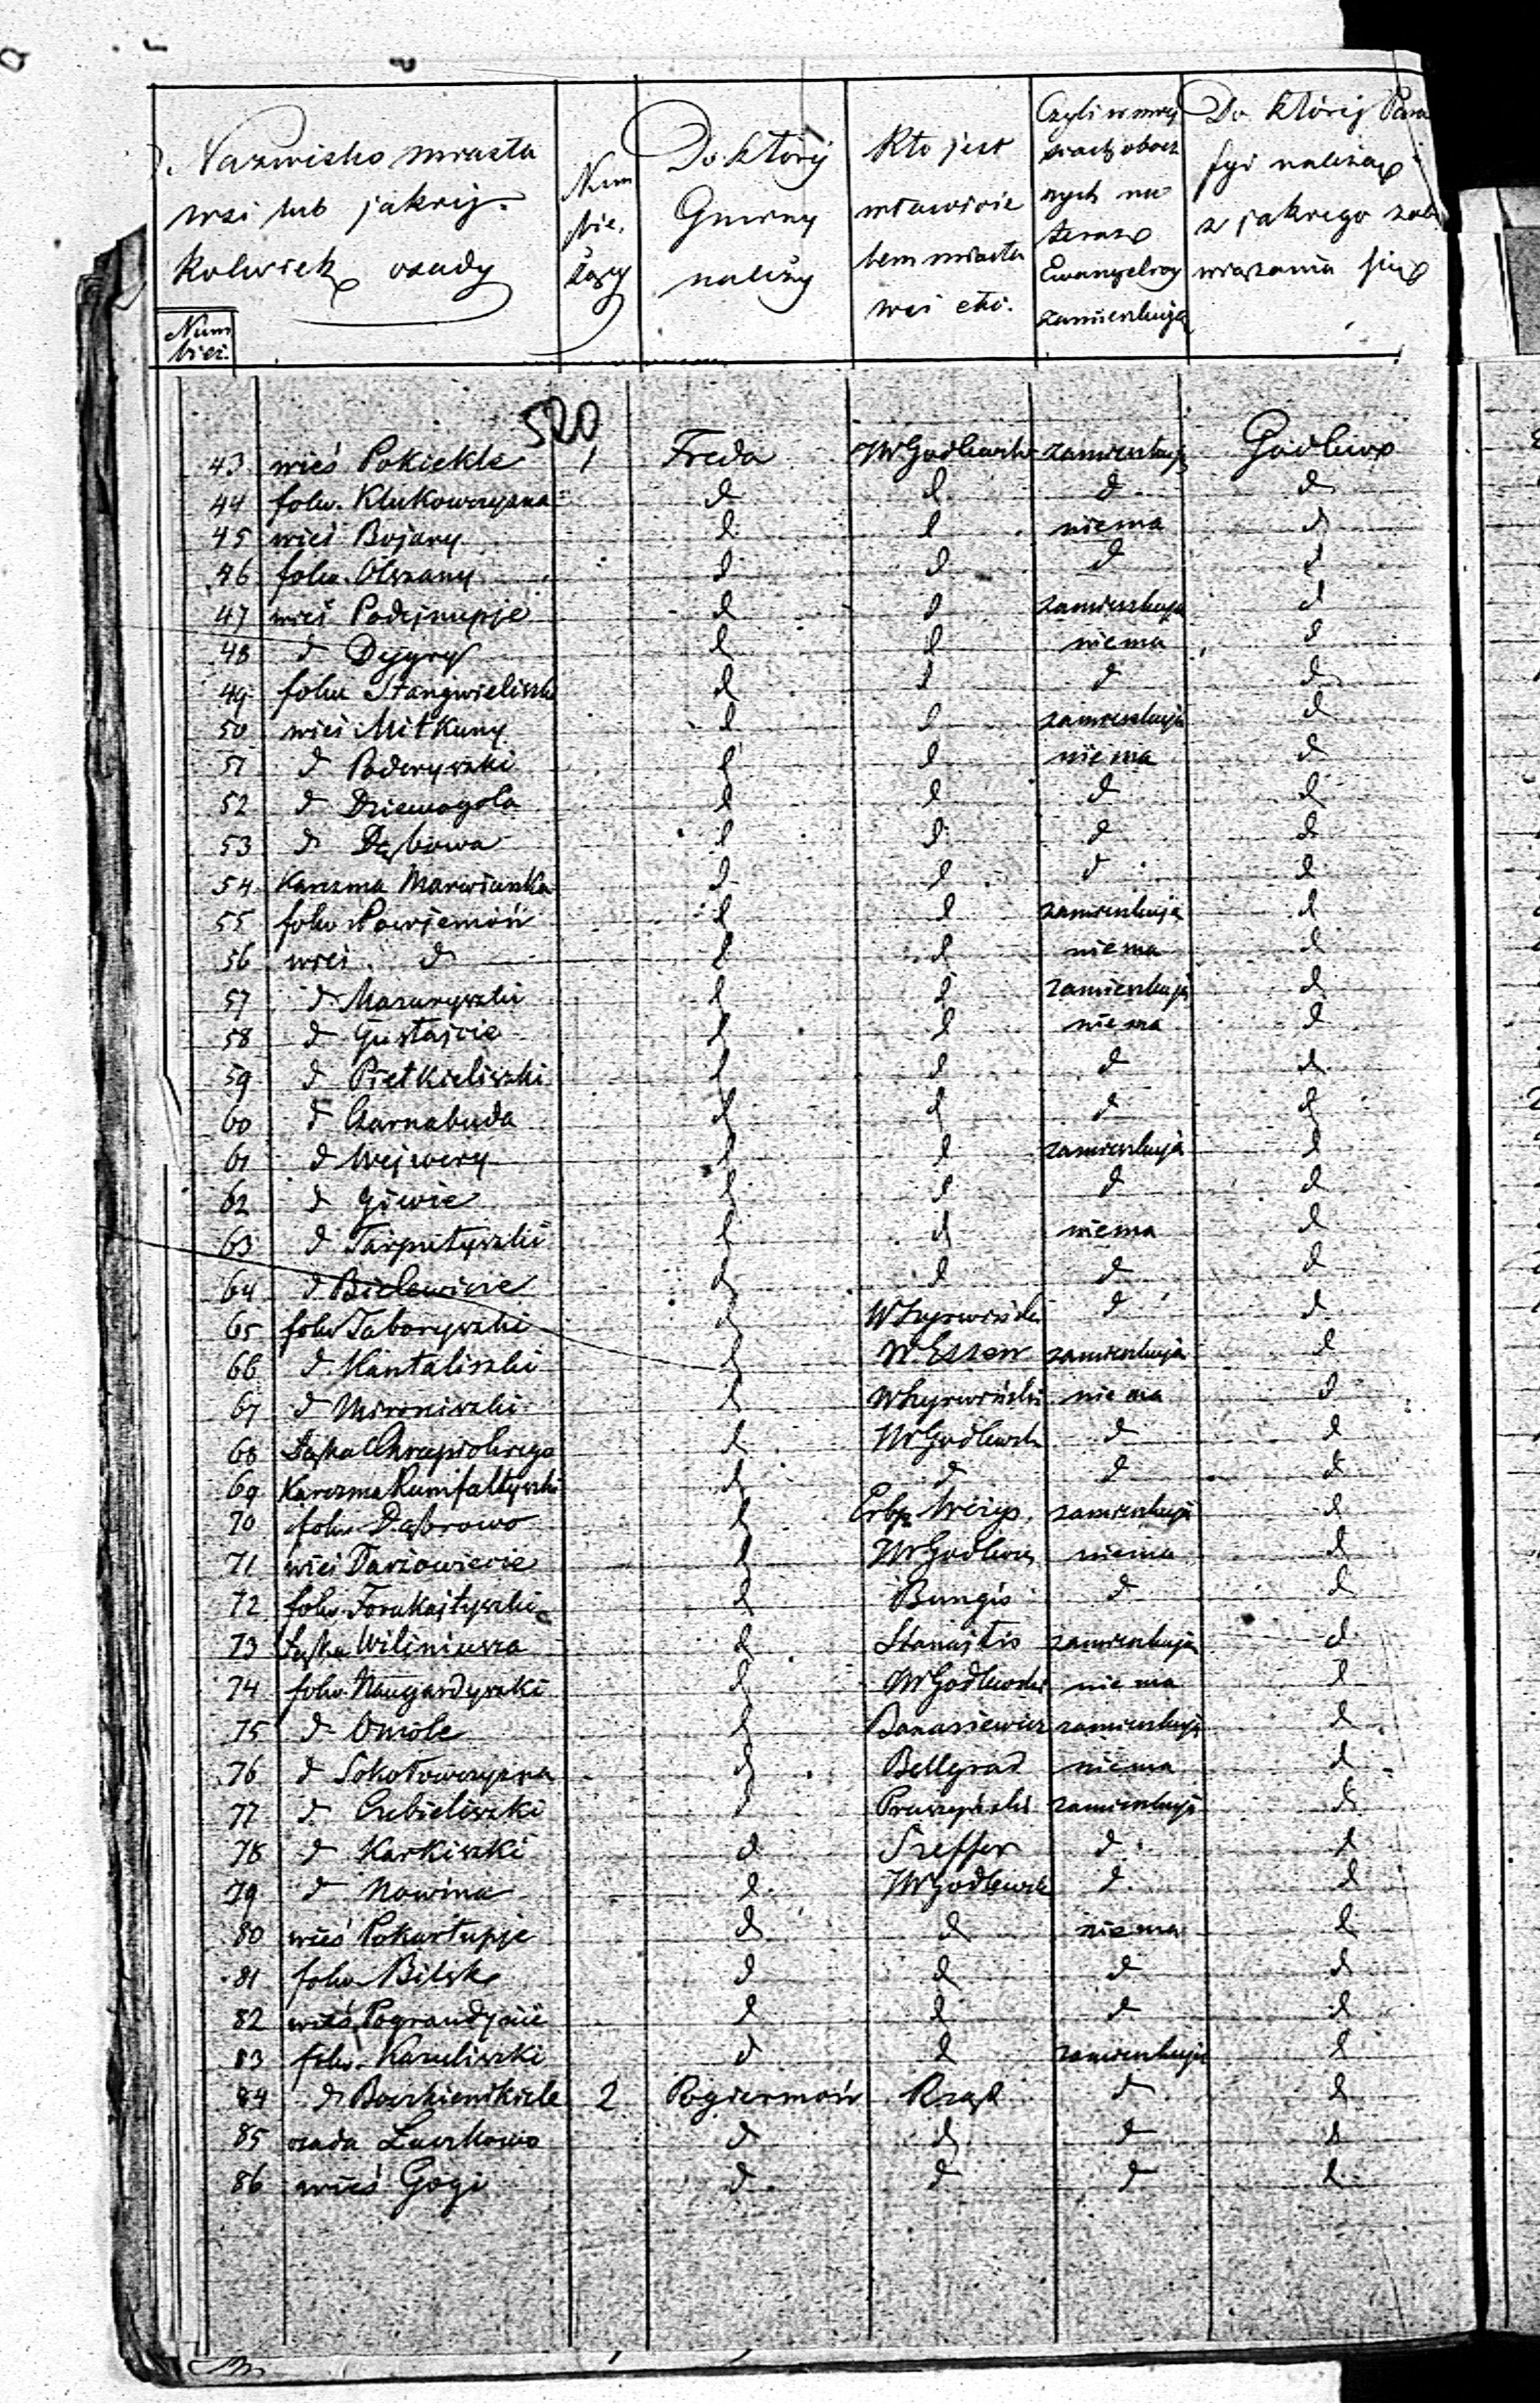 Nazwisko miasta
wsi lub jakiej-
kolwiek osady
Num
bież.
Num
bie.
żący
Do którey
Gminy
należy
Kto jest
właścicie
lem miasta
wsi etc.
Czyli w miej
scach obocz
nych na
teraz
Ewangelicy
zamieszkują
Do której Para
fyi należą i
z jakiego zobo
wiązania się
520
43 wieś Pokiekle 1 Freda W Godlewski zamieszkują Godlewo
44 folw. Klukowczyzna d d d d
45 wieś Bojary d d niema d
46 folw. Olszany d d d d
47 wieś Podejnupje d d zamieszkują d
48 d Dygry d d niema d
49 folw Stangwieliszk d d d d
50 wieś Mitkuny d d zamieszkują d
51 d Poderyszki d d niema d
52 d Dziewogola d d d d
53 d Dębowa d d d d
54 Karczma Marwianka d d d d
55 folw Powjemoń d d zamieszkują d
56 wieś d d d niema d
57 d Mazuryszki d d zamieszkują d
58 d Gustajcie d d niema d
59 d Pietkieliszki d d d d
60 d Czarnabuda d d d d
61 d Wejwery d d zamieszkują d
62 d Giwie d d d d
63 d Tarputyszki d d niema d
64 d Bielewicze d d d d
65 folw Taboryszki d d d
66 d Kantaliszki d W. Essen zamieszkują d
67 d Mironiszki d niema d
68 d W Godlewsk d d
69 Karczma Rumfaltyszki d d d d
70 folw Dąbrowo d zamieszkują d
71 wieś Darżowiecie d W Godlews niema d
72 folw. d Bungis d d
73 Wiliniusza d Stanajtis zamieszkują d
74 folw. Naugardyszki d W Godlewski niema d
75 d Omole d Banasiewicz zamieszkują d
76 d Sokołowczyzna d Bellgrad niema d
77 d Czebieliszki d Pruszyński zamieszkują d
78 d Karkiszki d Szeffer d d
79 d Nowina d W Godlewsk d d
80 wieś Pokartupje d d niema d
81 folw Bilsk d d d d
82 wieś Pograudjcie d d d d
83 folw. Kazeliszki d d zamieszkują d
84 d 2 Pogiermoń Rząd d d
85 osada Luczkowo d d d d
86 wieś Gogi d d d d